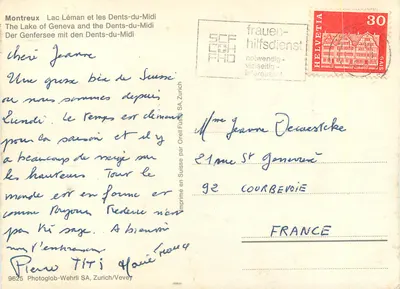 Montreux Lac Léman et les Dents-du-Midi
The Lake of Geneva and the Dents-du-Midi
Der Genfersee mit den Dents-du-Midi
SCF
CGH
FHD
frauen-
hilfsdienst
notwendig-
HELVETIA 30
Chère Jeanne
Une grosse bise de Suisse
où nous sommes depuis
Lundi. Le temps est clément
pour la saison et il y
a beaucoup de neige sur
les hauteurs. Tout le
monde est en forme et
comme toujours Frederic n'est
pas très sage. A bientôt
Pierre TITI
Imprimé en Suisse par Orell Füssli SA, Zurich
Mme Jeanne
21 rue St Geneviève
92 COURBEVOIE
FRANCE
9625 Photoglob-Wehrli SA, Zurich/Vevey